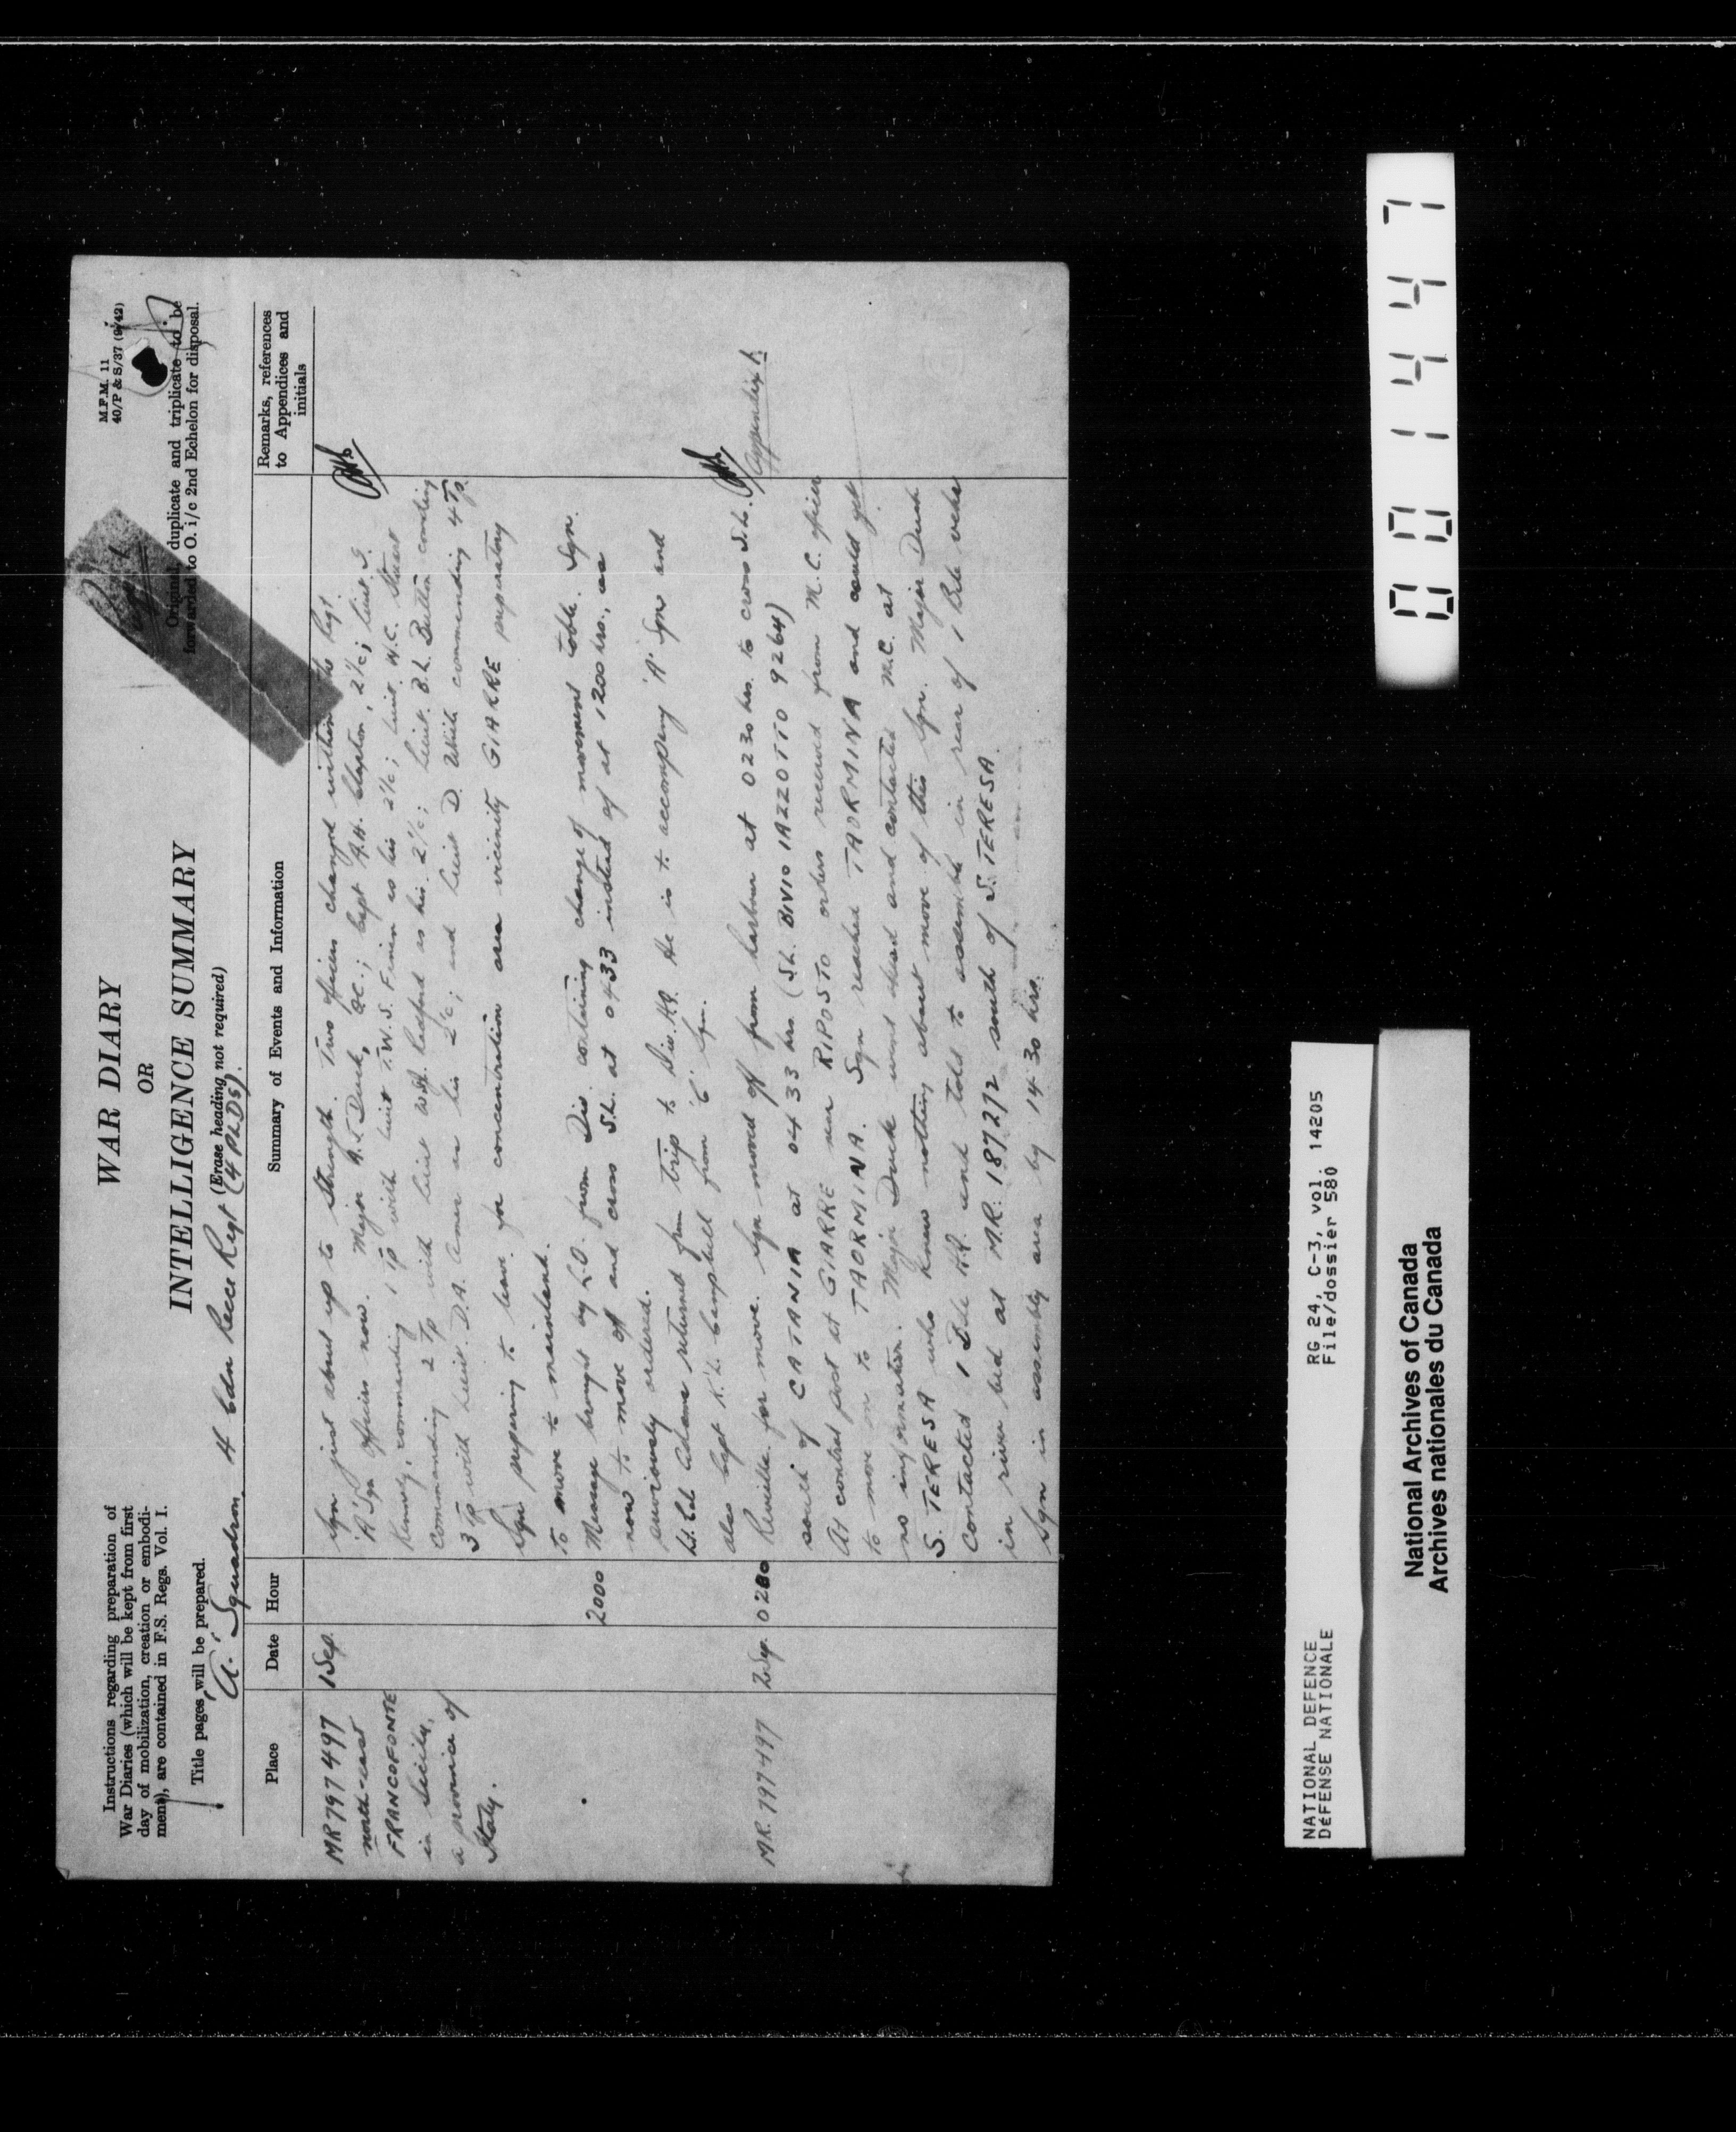 WAR DIARY
OR
INTELLIGENCE SUMMARY
(Erase heading not required)
Instructions regarding preparation of
War Diaries (which will be kept from first
day of mobilization, creation or embodi-
ment), are contained in F.S. Regs. Vol. I.
Title pages will be prepared.
M.F.M. 11
40/P & S/37 (9/42)
Original, duplicate and triplicate to be
forwarded to O. i/c 2nd Echelon for disposal.
'A' Squadron 4 Cdn Recce Regt (4 PLDG).
Place
Date
Hour
Summary of Events and Information
Remarks, references
to Appendices and
initials
MR 797497
north-east
FRANCOFONTE
in Sicily,
a province of
Italy.
1 Sep.
Sqn just about up to strength. Two officers changed within the Regt.
'A' Sqn officers now. Major A.T. Duck, OC.; Capt A.H. 2i/c; Lieut. S.
Kennedy, commanding 1 Tp with Lieut T.W.S. as his 2i/c; Lieut. W.C. Stewart
commanding 2 Tp with Lieut Hadford as his 2i/c; Lieut. B.L. Button comding
3 Tp with Lieut. D.A. as his 2i/c; and Lieut D. White commanding 4 Tp.
Sqn preparing to leave for concentration area vicinity GIARRE preparatory
to move to mainland.
2000
Message brought by L.O. from Div. containing change of movement table. Sqn.
now to move off and cross S.L. at 0433 instead of at 1200 hrs., as
previously ordered.
Lt. Col Adams returned from trip to Div. HQ. He is to accompany 'A' Sqn and
also Capt K.L. Campbell from 'C' Sqn.
M.R. 797497
2 Sep.
0200
Reveille for move. Sqn moved off from harbour at 0230 hrs. to cross S.L.
Appendix 1.
south of CATANIA at 0433 hrs. (S.L. BIVIO IAZZOTTO 9264)
At control post at GIARRE near RIPOSTO orders received from M.C. officer
to move on to TAORMINA. Sqn reached TAORMINA and could get
no information. Major Duck went ahead and contacted M.C. at
S. TERESA who knew nothing about move of this Sqn. Major Duck
contacted 1 Bde HQ. and told to assemble in rear of 1 Bde vehs
in river bed at M.R. 187272 south of S. TERESA.
Sqn in assembly area by 1430 hrs.
001447
NATIONAL DEFENCE
DÉFENSE NATIONALE
RG 24, C-3, vol. 14205
File/dossier 580
National Archives of Canada
Archives nationales du Canada